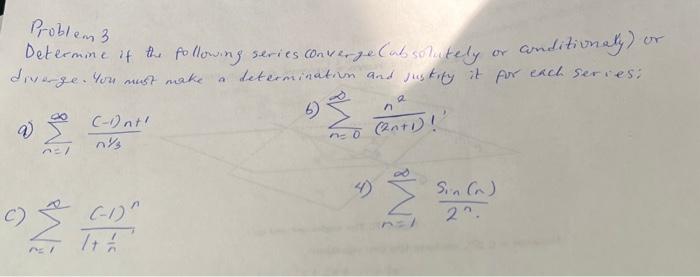 Problem 3
Determine if the following series converge (absolutely or conditionally) or
diverge. You must make a determination and justify it for each series:
a) ∞ Σ n=1 (-1)n+1 / n^1/3
b) ∞ Σ n=0 n^2 / (2n+1)!
c) ∞ Σ n=1 (-1)^n / 1+ 1/n
4) ∞ Σ n=1 Sin(n) / 2^n.